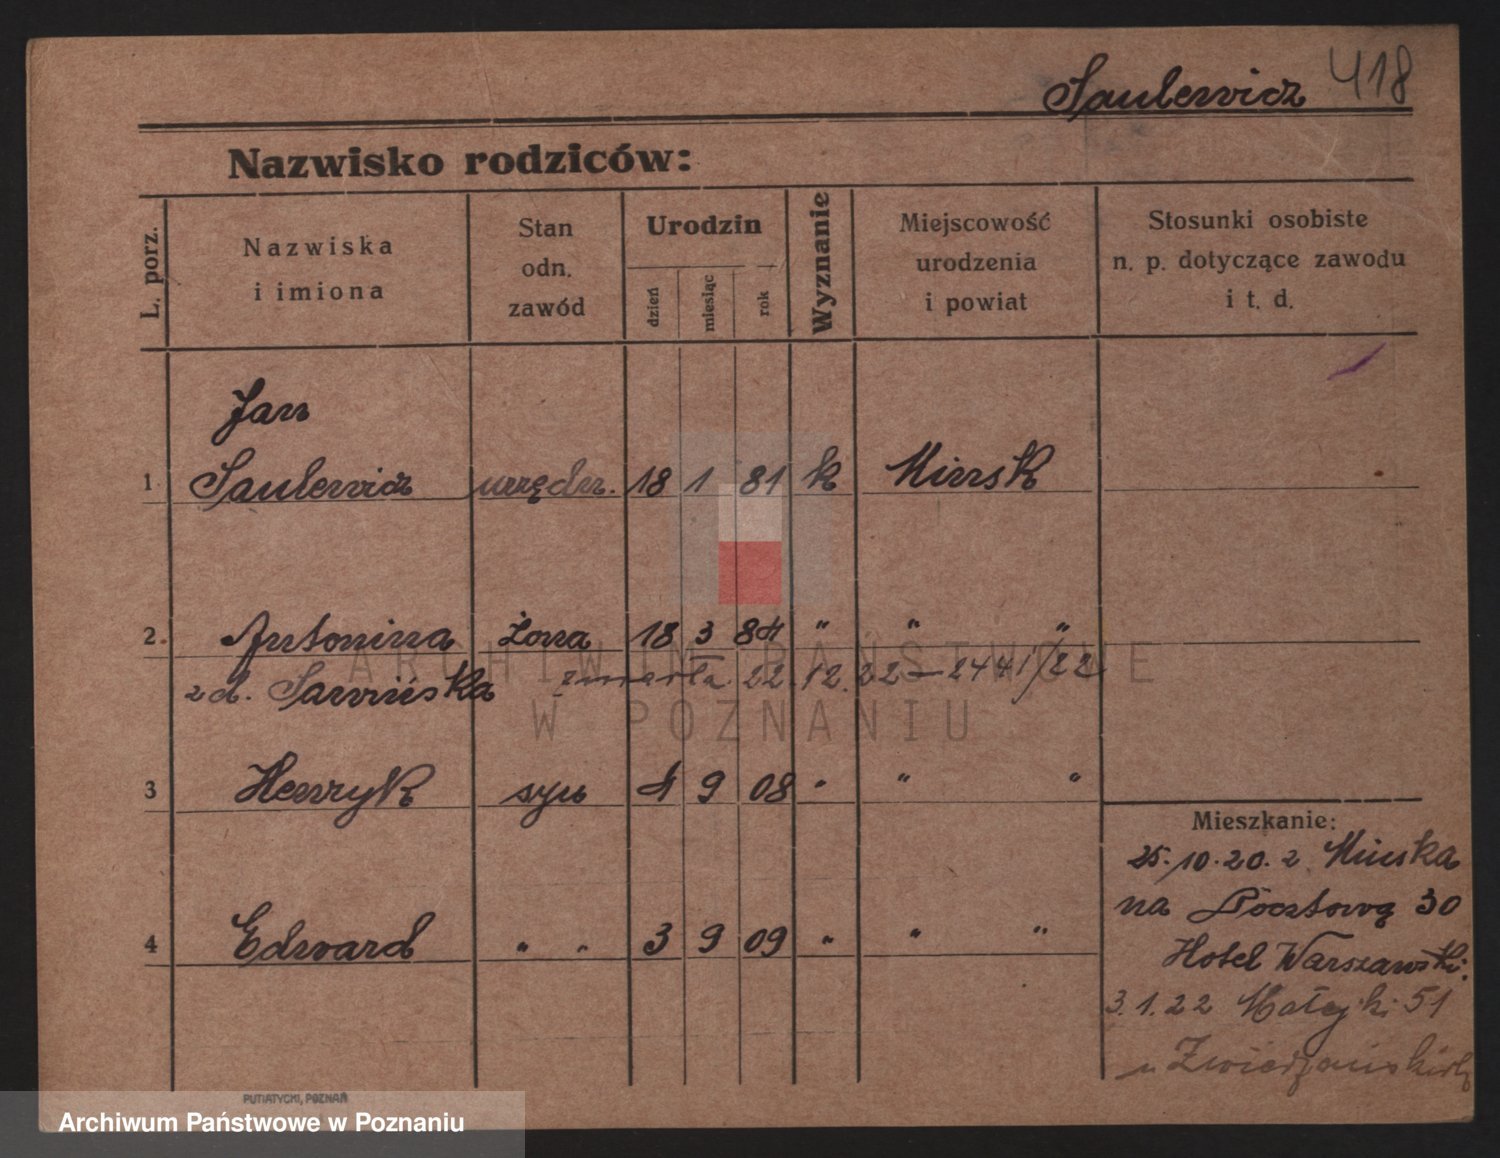 Saulewicz 418
Nazwisko rodziców:
L. porz.
Nazwiska
i imiona
Stan
odn.
zawód
Urodzin
dzień
miesiąc
rok
Wyznanie
Miejscowość
urodzenia
i powiat
Stosunki osobiste
n. p. dotyczące zawodu
i t. d.
Jan
1 Saulewicz urzędn. 18 1 81 k Minsk
2. Antonina żona 18 3 84 " " "
z d. Sawińska zmarła 22.12.22 - 2441/22
3 Henryk syn 4 9 08 " " "
4 Edward " " 3 9 09 " " "
Mieszkanie:
25.10.20. z Minska
na Pocztową 30
Hotel Warszawski.
3.1.22 Matejki 51
u
ARCHIWUM PAŃSTWOWE
W POZNANIU
PUTIATYCKI, POZNAŃ
Archiwum Państwowe w Poznaniu